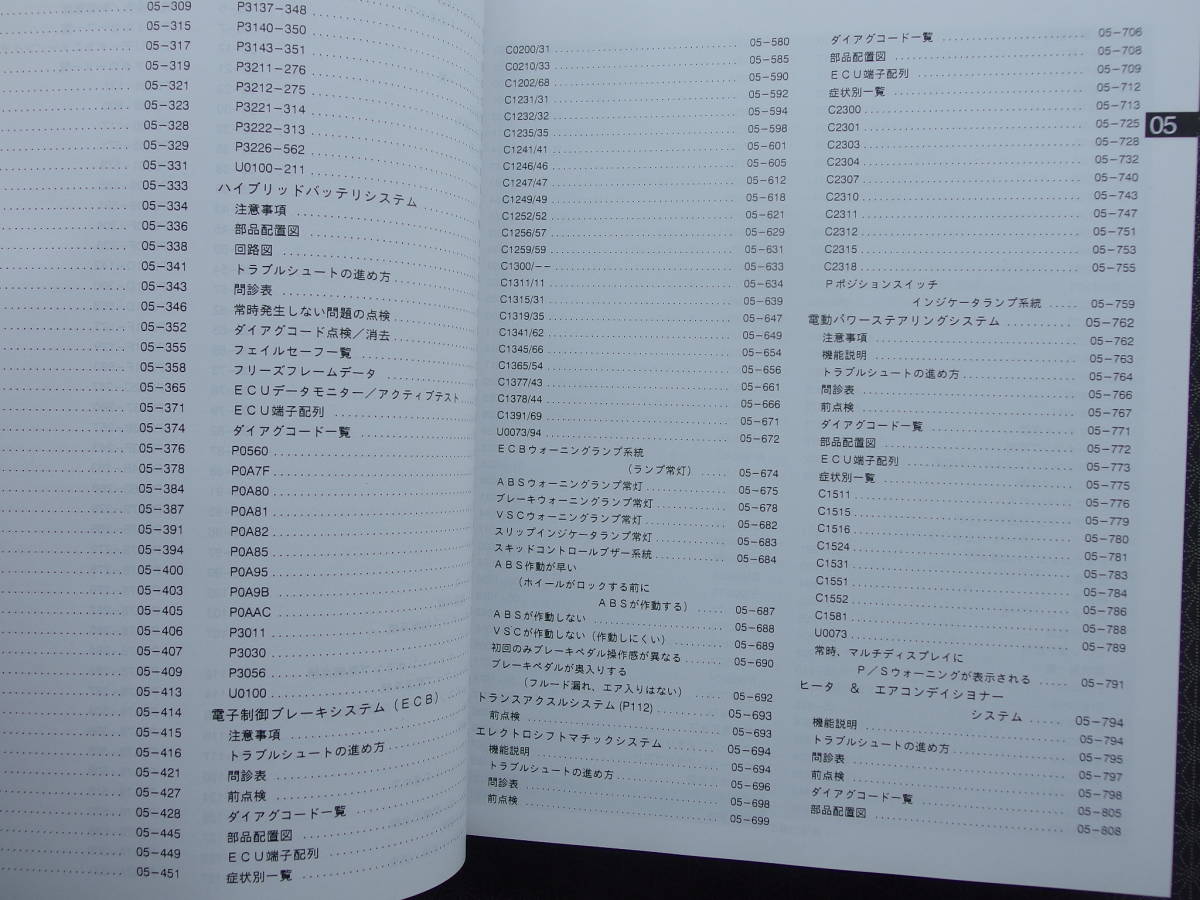 05-309
05-315
05-317
05-319
05-321
05-323
05-328
05-329
05-331
05-333
05-334
05-336
05-338
05-341
05-343
05-346
05-352
05-355
05-358
05-365
05-371
05-374
05-376
05-378
05-384
05-387
05-391
05-394
05-400
05-403
05-405
05-406
05-407
05-409
05-413
05-414
05-415
05-416
05-421
05-427
05-428
05-445
05-449
05-451
P3137-348
P3140-350
P3143-351
P3211-276
P3212-275
P3221-314
P3222-313
P3226-562
U0100-211
ハイブリッドバッテリシステム
注意事項
部品配置図
回路図
トラブルシュートの進め方
問診表
常時発生しない問題の点検
ダイアグコード点検/消去
フェイルセーフ一覧
フリーズフレームデータ
ECUデータモニター/アクティブテスト
ECU端子配列
ダイアグコード一覧
P0560
P0A7F
P0A80
P0A81
P0A82
P0A85
P0A95
P0A9B
P0AAC
P3011
P3030
P3056
U0100
電子制御ブレーキシステム(ECB)
注意事項
トラブルシュートの進め方
問診表
前点検
ダイアグコード一覧
部品配置図
ECU端子配列
症状別一覧
C0200/31 05-580
C0210/33 05-585
C1202/68 05-590
C1231/31 05-592
C1232/32 05-594
C1235/35 05-598
C1241/41 05-601
C1246/46 05-605
C1247/47 05-612
C1249/49 05-618
C1252/52 05-621
C1256/57 05-629
C1259/59 05-631
C1300/-- 05-633
C1311/11 05-634
C1315/31 05-639
C1319/35 05-647
C1341/62 05-649
C1345/66 05-654
C1365/54 05-656
C1377/43 05-661
C1378/44 05-666
C1391/69 05-671
U0073/94 05-672
ECBウォーニングランプ系統
(ランプ常灯) 05-674
ABSウォーニングランプ常灯 05-675
ブレーキウォーニングランプ常灯 05-678
VSCウォーニングランプ常灯 05-682
スリップインジケータランプ常灯 05-683
スキッドコントロールブザー系統 05-684
ABS作動が早い
(ホイールがロックする前に
ABSが作動する) 05-687
ABSが作動しない 05-688
VSCが作動しない(作動しにくい) 05-689
初回のみブレーキペダル操作感が異なる 05-690
ブレーキペダルが奥入りする
(フルード漏れ、エア入りはない) 05-692
トランスアクスルシステム(P112) 05-693
前点検 05-693
エレクトロシフトマチックシステム 05-694
機能説明 05-694
トラブルシュートの進め方 05-696
問診表 05-698
前点検 05-699
ダイアグコード一覧 05-706
部品配置図 05-708
ECU端子配列 05-709
症状別一覧 05-712
C2300 05-713
C2301 05-725
C2303 05-728
C2304 05-732
C2307 05-740
C2310 05-743
C2311 05-747
C2312 05-751
C2315 05-753
C2318 05-755
Pポジションスイッチ
インジケータランプ系統 05-759
電動パワーステアリングシステム 05-762
注意事項 05-762
機能説明 05-763
トラブルシュートの進め方 05-764
問診表 05-766
前点検 05-767
ダイアグコード一覧 05-771
部品配置図 05-772
ECU端子配列 05-773
症状別一覧 05-775
C1511 05-776
C1515 05-779
C1516 05-780
C1524 05-781
C1531 05-783
C1551 05-784
C1552 05-786
C1581 05-788
U0073 05-789
常時、マルチディスプレイに
P/Sウォーニングが表示される 05-791
ヒータ & エアコンデイショナー
システム 05-794
機能説明 05-794
トラブルシュートの進め方 05-795
問診表 05-797
前点検 05-798
ダイアグコード一覧 05-805
部品配置図 05-808
05